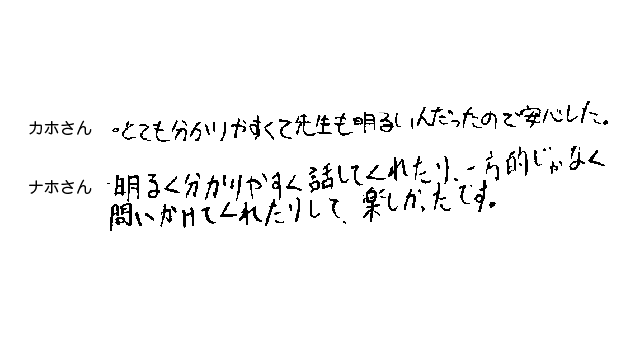 カホさん ・とても分かりやすくて先生も明るい人だったので安心した。
ナホさん ・明るく分かりやすく話してくれたり、一方的じゃなく
問いかけてくれたりして、楽しかったです。